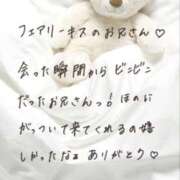 フェアリーキスのお兄さん♡
会った瞬間からビンビン
だったお兄さんっ！ほのに
がっついて来てくれるの嬉
しかったなぁ ありがとう♡